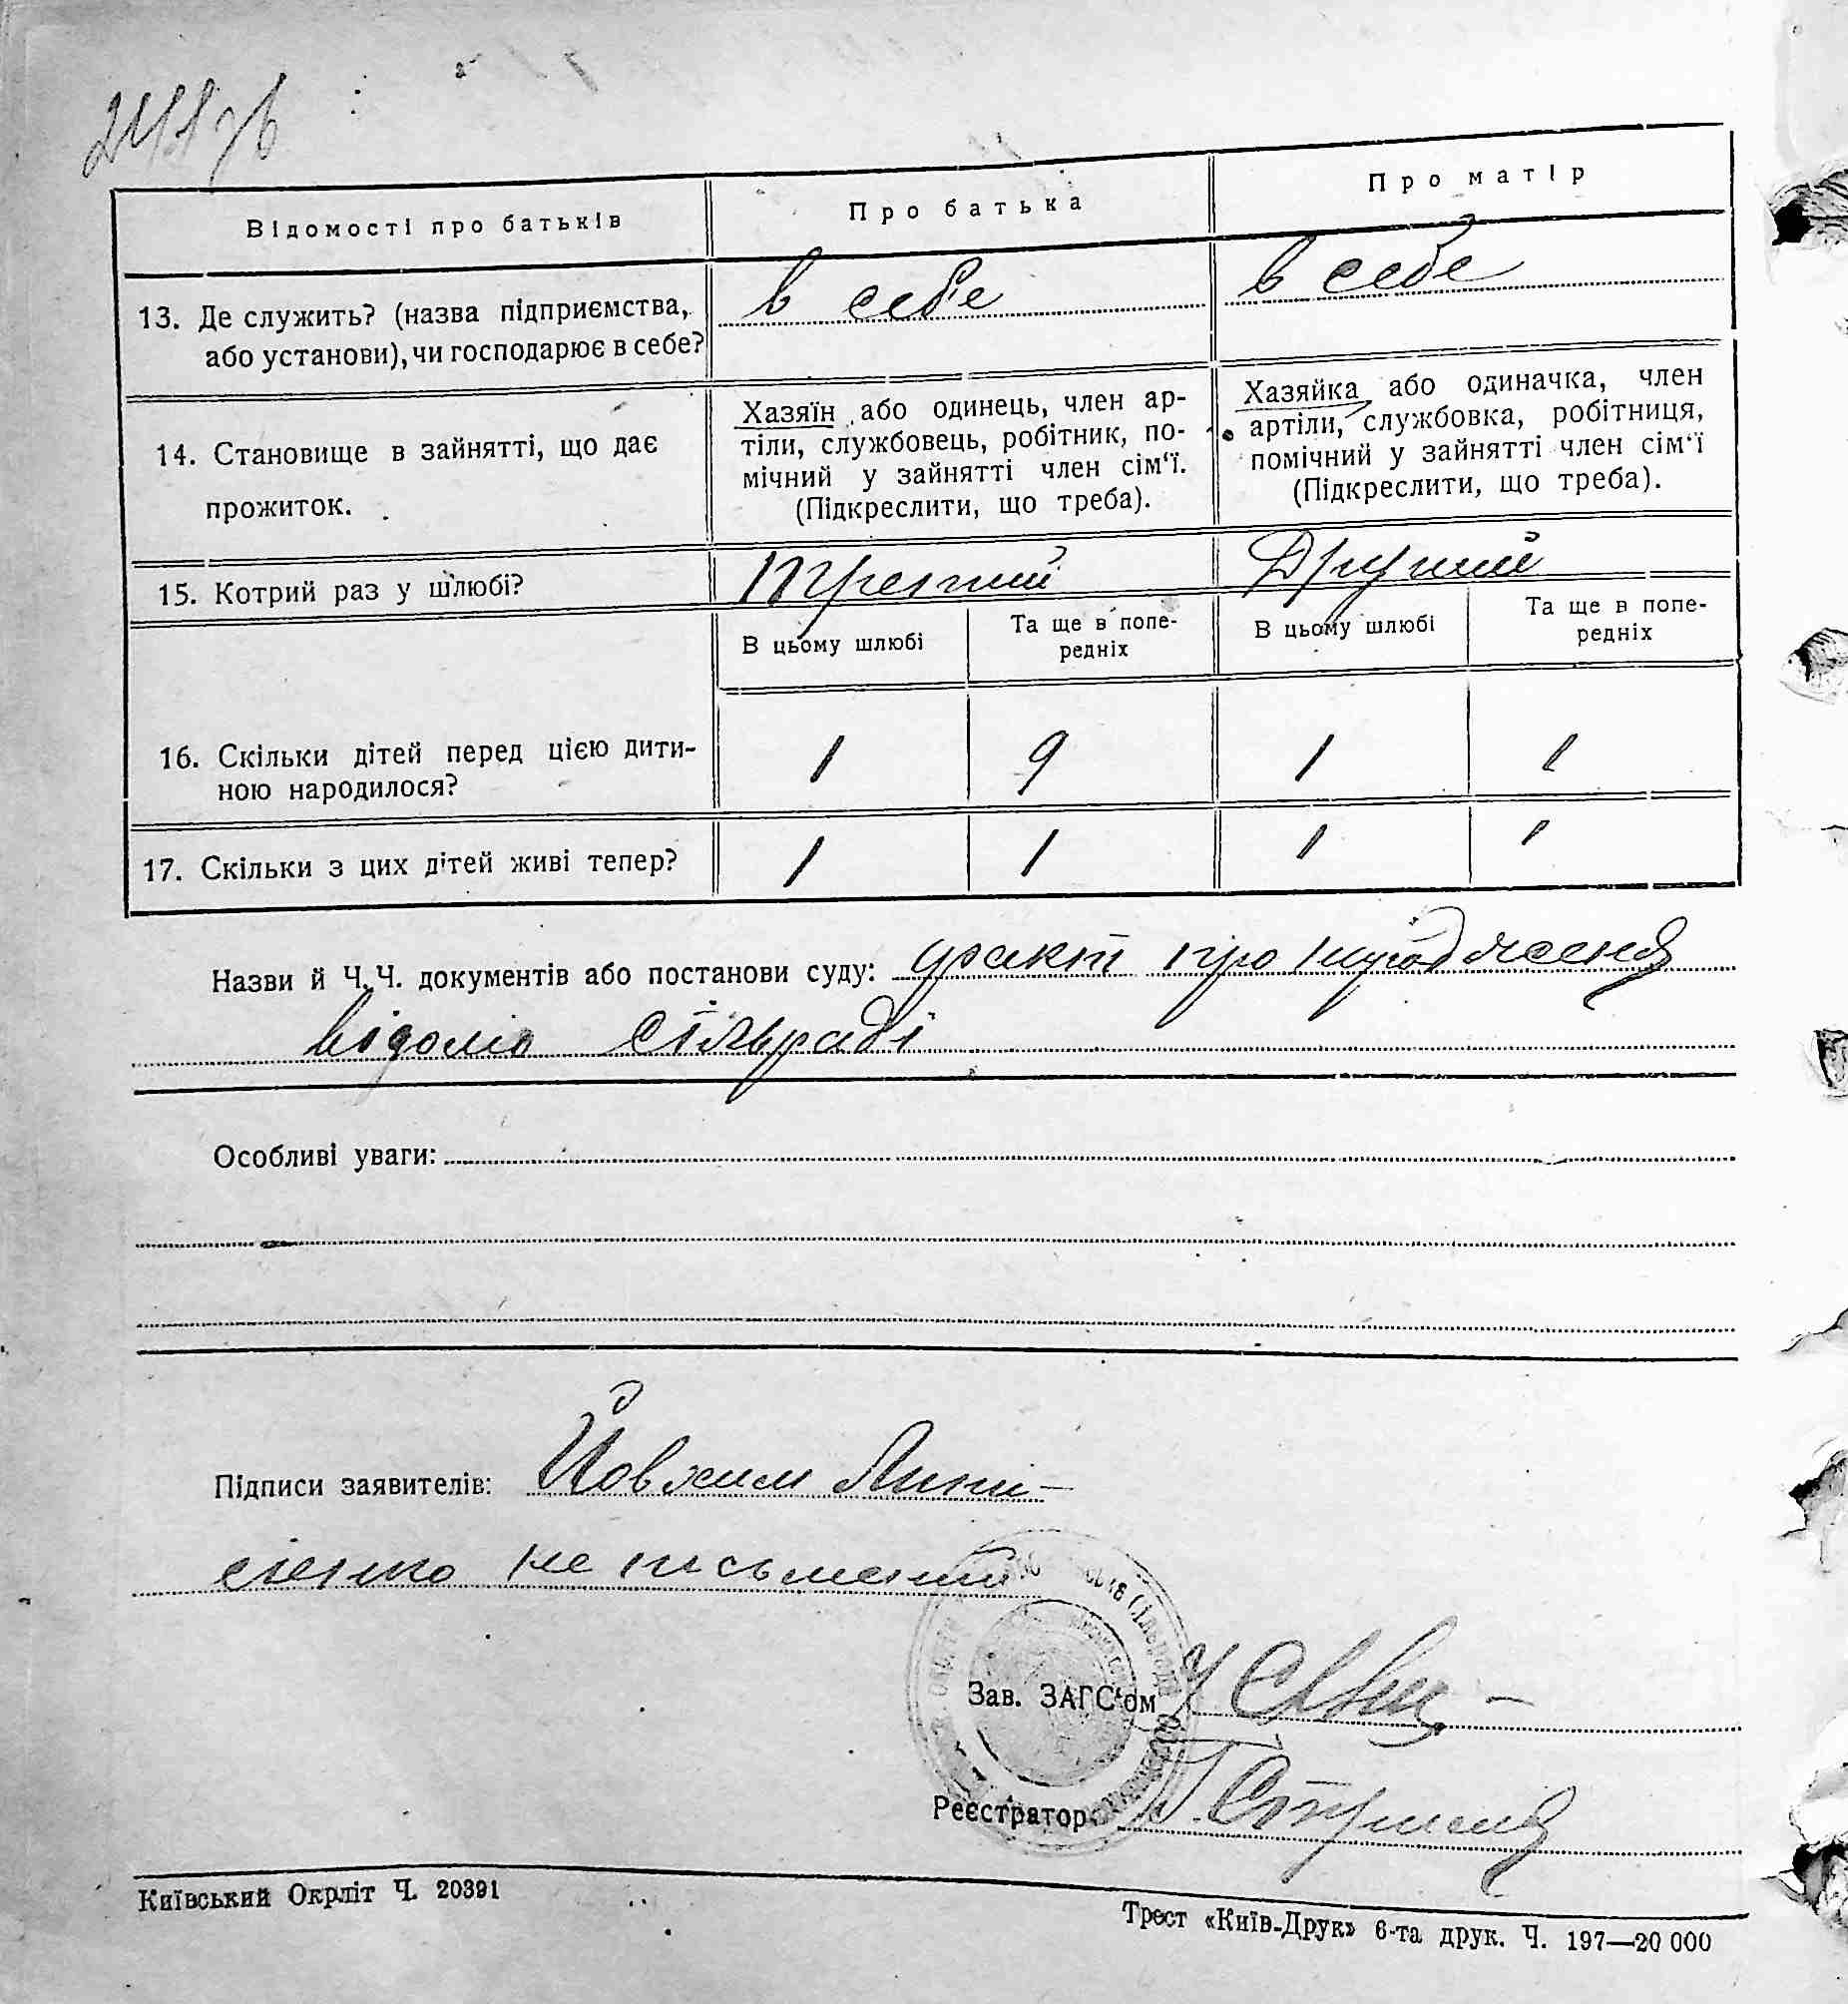 Відомості про батьків
Про батька
Про матір
13. Де служить? (назва підприємства, або установи), чи господарює в себе?
в себе
в себе
14. Становище в зайнятті, що дає прожиток.
Хазяїн або одинець, член ар-
тіли, службовець, робітник, по-
мічний у зайнятті член сім'ї.
(Підкреслити, що треба).
Хазяйка або одиначка, член
артіли, службовка, робітниця,
помічний у зайнятті член сім'ї
(Підкреслити, що треба).
15. Котрий раз у шлюбі?
Третий
Другий
В цьому шлюбі
Та ще в попе-
редніх
В цьому шлюбі
Та ще в попе-
редніх
16. Скільки дітей перед цією дити-
ною народилося?
1
9
1
1
17. Скільки з цих дітей живі тепер?
1
1
1
1
Назви й Ч.Ч. документів або постанови суду: факт про народження
відомо сільраді
Особливі уваги:
Підписи заявителів: Йовхим
не письмений
Зав. ЗАГС'ом
Реєстратор
Київський Окрліт Ч. 20391
Трест «Київ-Друк» 6-та друк. Ч. 197—20 000